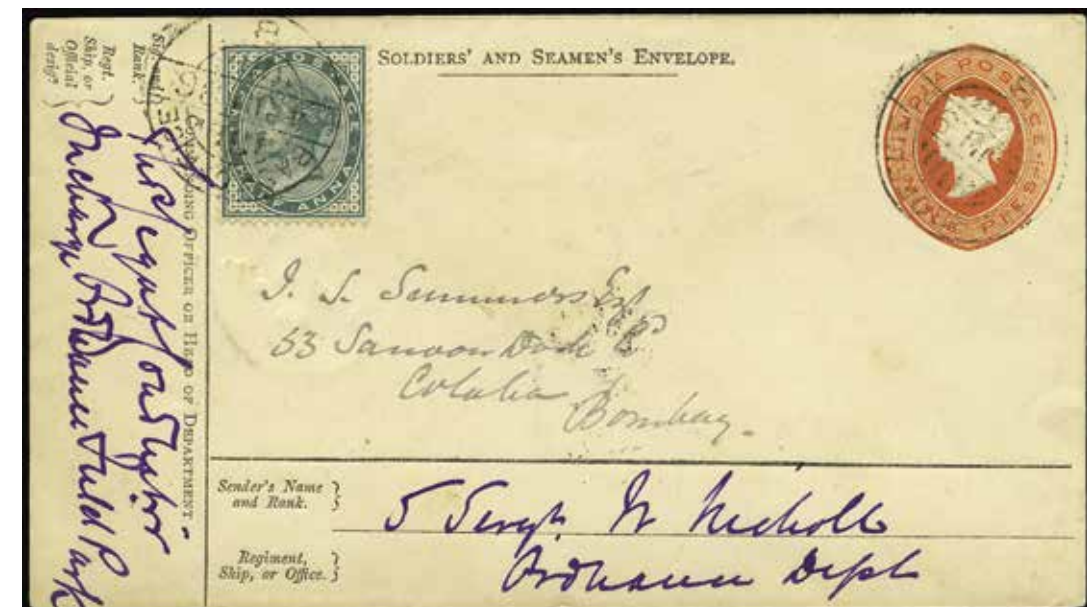 SOLDIERS' AND SEAMEN'S ENVELOPE.
INDIA POSTAGE
HALF ANNA
INDIA POSTAGE
NINE PIES
J. S. Summers Esq
53 Dock Rd
Colaba
Bombay.
Sender's Name and Rank.
Sergt. W Nicholls
Regiment, Ship, or Office.
Ordnance Dept
COMMANDING OFFICER OR HEAD OF DEPARTMENT.
Sig. and Rank.
Regt. Ship, or Official desigⁿ
Incharge Ordnance Field Park